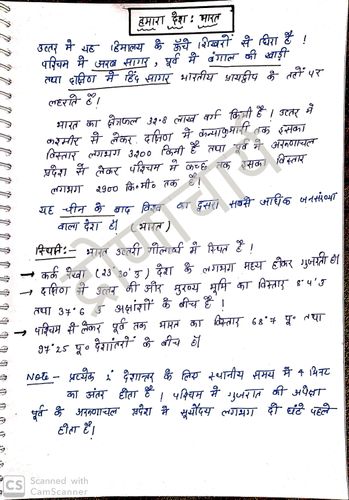 हमारा देश : भारत
उत्तर में यह हिमालय के ऊँचे शिखरों से घिरा है !
पश्चिम में अरब सागर, पूर्व में बंगाल की खाड़ी
तथा दक्षिण में हिंद सागर भारतीय प्रायद्वीप के तटों पर
लहराते हैं।
भारत का क्षेत्रफल 32.8 लाख वर्ग किमी है ! उत्तर में
कश्मीर से लेकर दक्षिण में कन्याकुमारी तक इसका
विस्तार लगभग 3200 किमी है तथा पूर्व में अरुणाचल
प्रदेश से लेकर पश्चिम में कच्छ तक इसका विस्तार
लगभग 2900 कि०मी० तक है।
यह चीन के बाद विश्व का दुसरा सबसे अधिक जनसंख्या
वाला देश है। (भारत)
स्थिति:- भारत उत्तरी गोलार्ध्द में स्थित है !
→ कर्क रेखा (23°30' उ) देश के लगभग मध्य होकर गुजरती है।
→ दक्षिण से उत्तर की ओर मुख्य भूमि का विस्तार 8°4' उ
तथा 37°6' उ अक्षांशों के बीच है !
→ पश्चिम से लेकर पूर्व तक भारत का विस्तार 68°7' पू० तथा
97°25' पू० देशांतरों के बीच है।
Note - प्रत्येक 1° देशान्तर के लिए स्थानीय समय में 4 मिनट
का अंतर होता है ! पश्चिम में गुजरात की अपेक्षा
पूर्व के अरुणाचल प्रदेश में सूर्योदय लगभग दो घंटे पहले
होता है !
द्रोणाचार्य
CS Scanned with
CamScanner